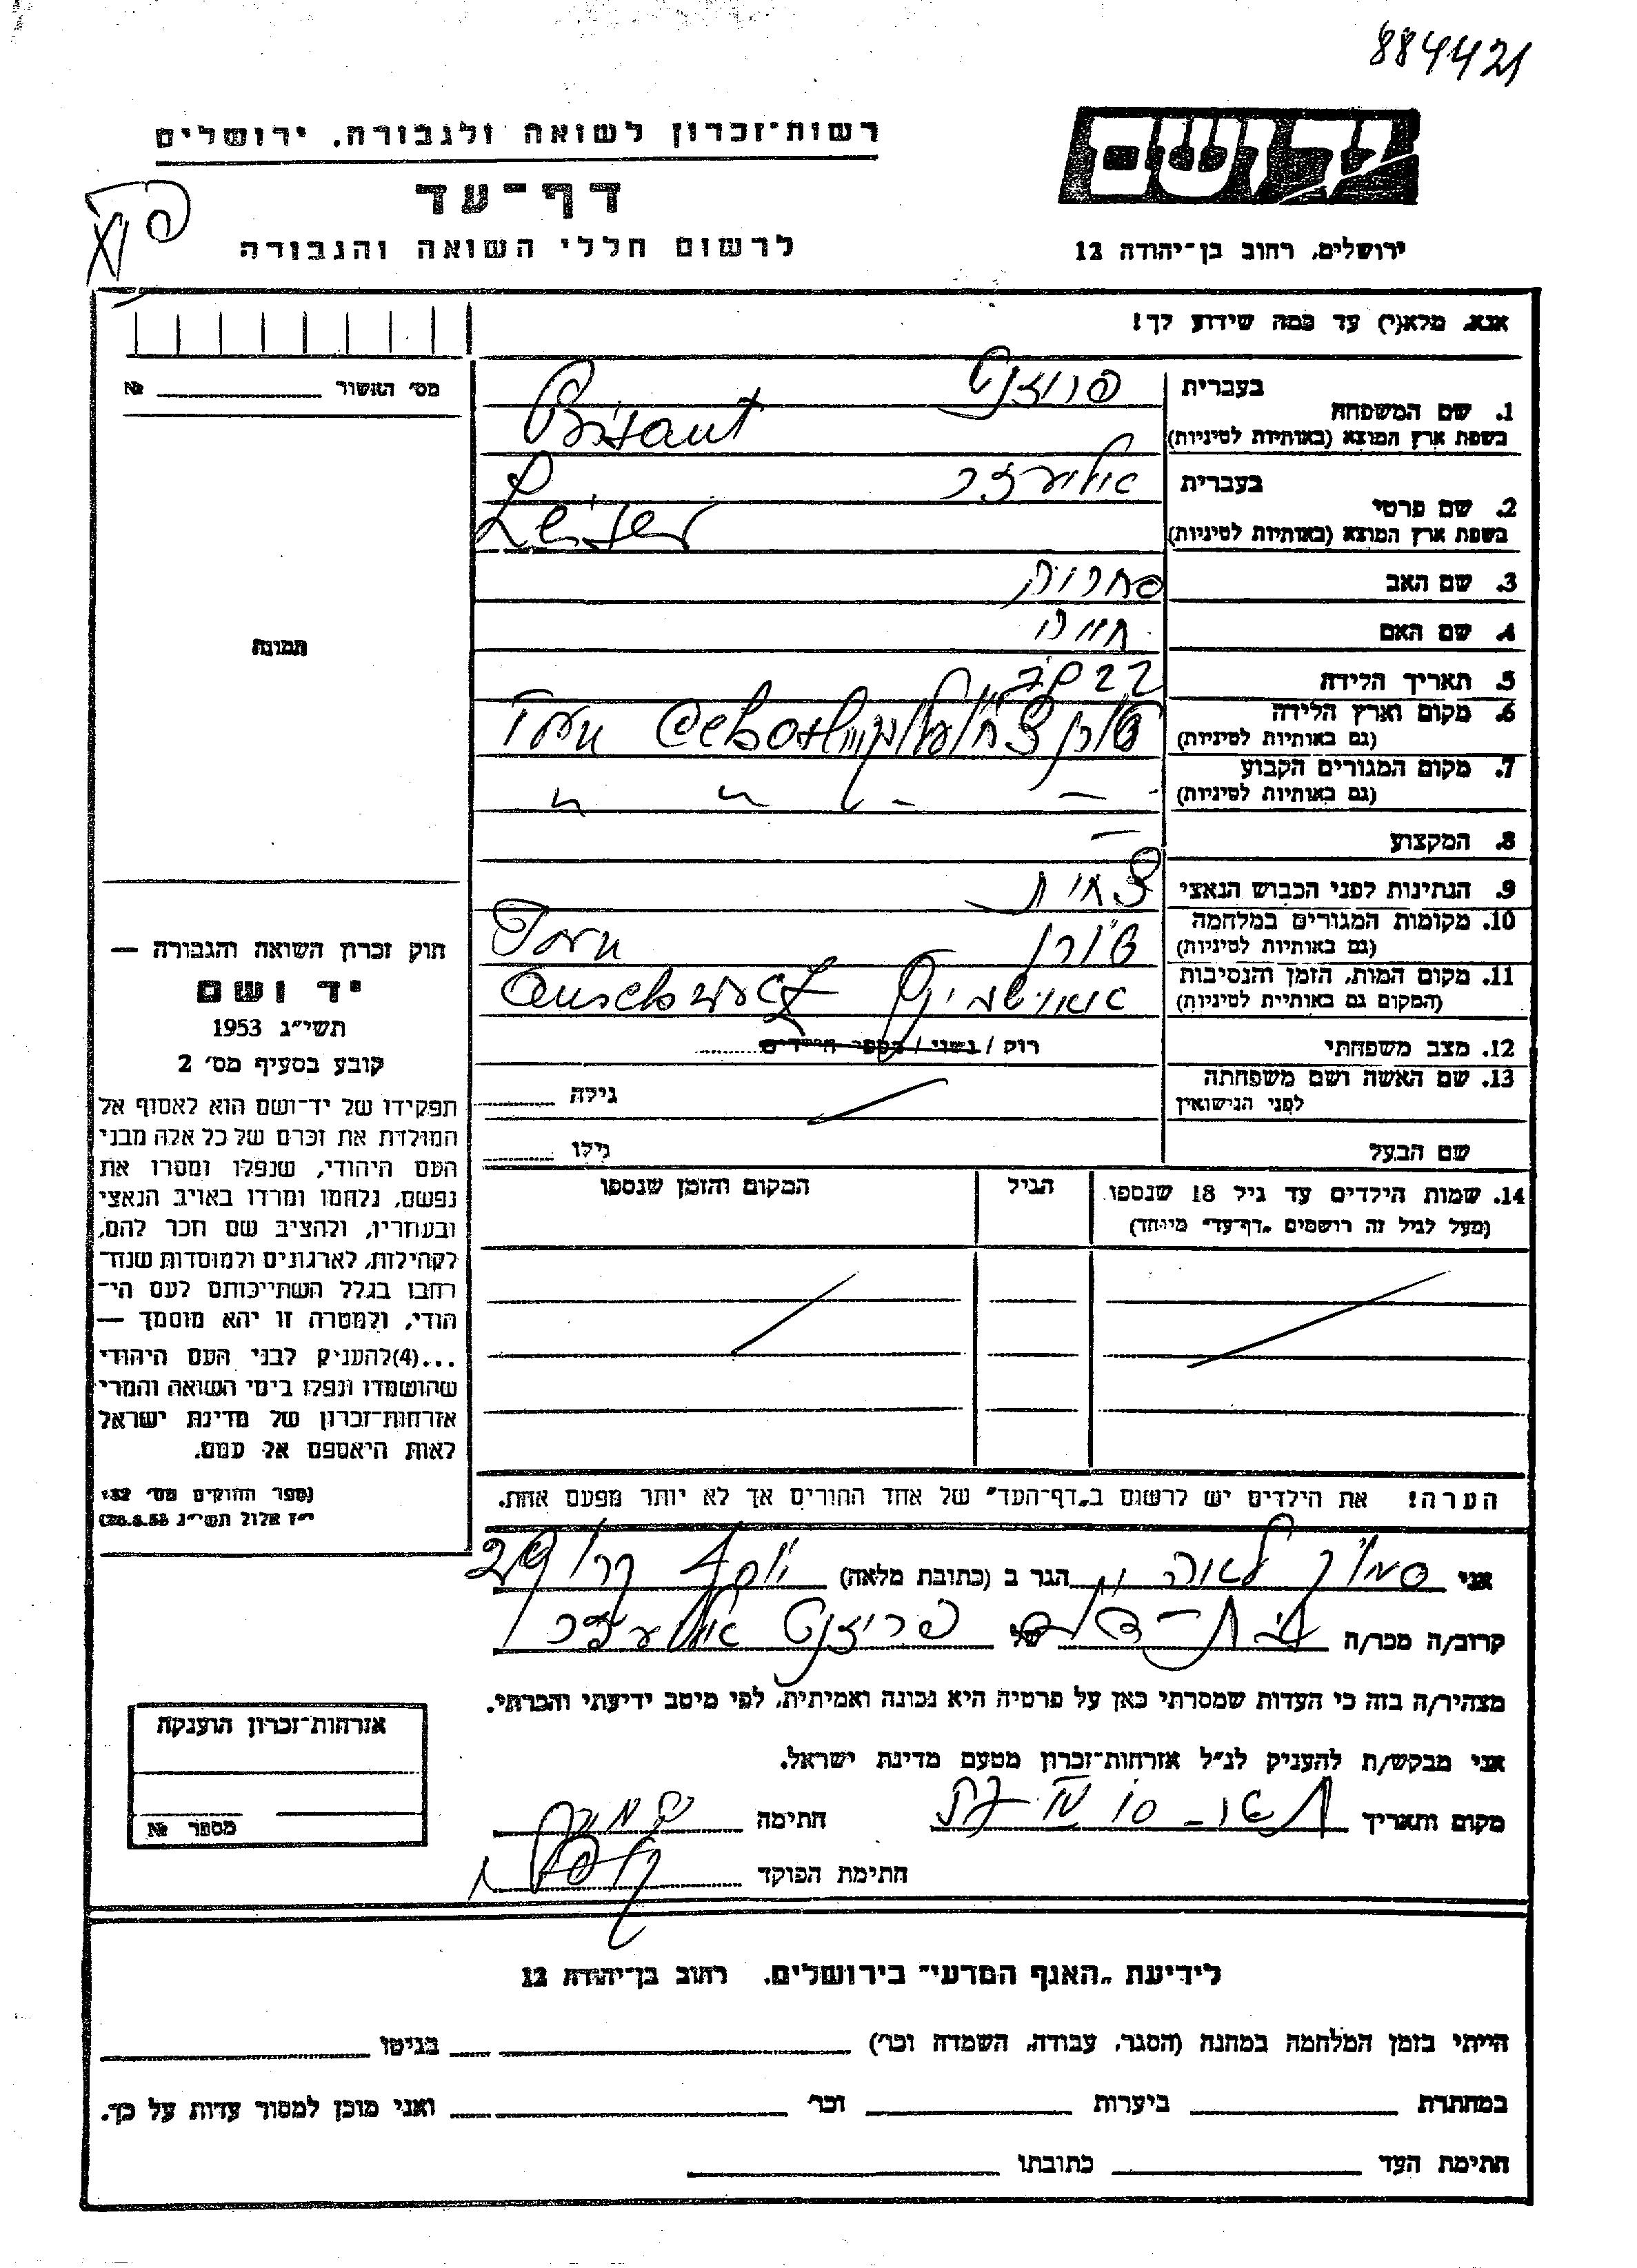 884421
יד ושם
רשות־זכרון לשואה ולגבורה, ירושלים
דף־עד
לרשום חללי השואה והגבורה
ירושלים, רחוב בן־יהודה 12
אנא, מלא(י) עד כמה שידוע לך!
מס׳ האשור № 
בעברית פריזנט
1. שם המשפחה
בשפת ארץ המוצא (באותיות לטיניות) Prisant
בעברית אליעזר
2. שם פרטי
בשפת ארץ המוצא (באותיות לטיניות) Leiser
3. שם האב
4. שם האם חיה
5. תאריך הלידה
6. מקום וארץ הלידה
(גם באותיות לטיניות)
7. מקום המגורים הקבוע
(גם באותיות לטיניות)
8. המקצוע —
9. הנתינות לפני הכבוש הנאצי צ׳כית
10. מקומות המגורים במלחמה
(גם באותיות לטיניות)
11. מקום המות, הזמן והנסיבות
(המקום גם באותיות לטיניות)
12. מצב משפחתי רוק / נשוי / מספר הילדים
13. שם האשה ושם משפחתה
לפני הנישואין גילה
שם הבעל גילו
14. שמות הילדים עד גיל 18 שנספו הגיל המקום והזמן שנספו
(מעל לגיל זה רושמים „דף־עד״ מיוחד)
הערה! את הילדים יש לרשום ב„דף־העד״ של אחד ההורים אך לא יותר מפעם אחת.
תמונה
חוק זכרון השואה והגבורה —
יד ושם
תשי״ג 1953
קובע בסעיף מס׳ 2
תפקידו של יד־ושם הוא לאסוף אל
המולדת את זכרם של כל אלה מבני
העם היהודי, שנפלו ומסרו את
נפשם, נלחמו ומרדו באויב הנאצי
ובעוזריו, ולהציב שם וזכר להם,
לקהילות, לארגונים ולמוסדות שנח־
רבו בגלל השתייכותם לעם הי־
הודי, ולמטרה זו יהא מוסמך —
...(4) להעניק לבני העם היהודי
שהושמדו ונפלו בימי השואה והמרי
אזרחות־זכרון של מדינת ישראל
לאות היאספם אל עמם.
(ספר החוקים מס׳ 132
י״ז אלול תשי״ג 28.8.53)
אני לאה הגר ב (כתובת מלאה)
קרוב/ה מכר/ה בת־דוד של פריזנט אליעזר
מצהיר/ה בזה כי העדות שמסרתי כאן על פרטיה היא נכונה ואמיתית, לפי מיטב ידיעתי והכרתי.
אני מבקש/ת להעניק לנ״ל אזרחות־זכרון מטעם מדינת ישראל.
מקום ותאריך חתימה
חתימת הפוקד
אזרחות־זכרון הוענקה
מספר №
לידיעת „האגף המדעי״ בירושלים. רחוב בן־יהודה 12
הייתי בזמן המלחמה במחנה (הסגר, עבודה, השמדה וכו׳) בגיטו
במחתרת ביערות וכו׳ ואני מוכן למסור עדות על כך.
חתימת העד כתובתו